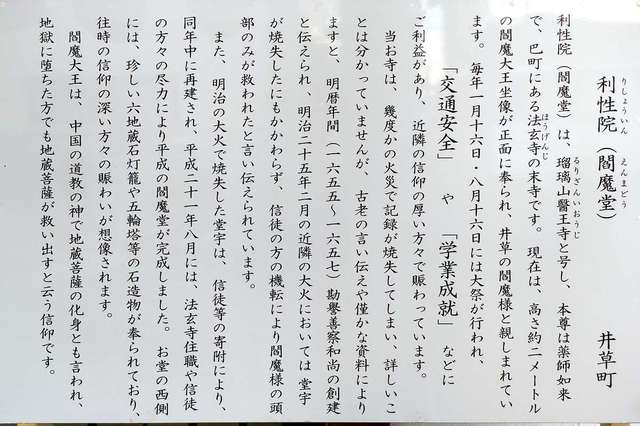 利性院（閻魔堂）　井草町
りしょういん　えんまどう
利性院（閻魔堂）は、瑠璃山醫王寺と号し、本尊は薬師如来
るりざんいおうじ
で、巴町にある法玄寺の末寺です。現在は、高さ約二メートル
ほうげんじ
の閻魔大王坐像が正面に奉られ、井草の閻魔様と親しまれてい
ます。毎年一月十六日・八月十六日には大祭が行われ、
「交通安全」　や　「学業成就」　などに
ご利益があり、近隣の信仰の厚い方々で賑わっています。
当お寺は、幾度かの火災で記録が焼失してしまい、詳しいこ
とは分かっていませんが　古老の言い伝えや僅かな資料により
ますと、明暦年間（一六五五〜一六五七）勘譽善察和尚の創建
と伝えられ、明治二十五年二月の近隣の大火においては　堂宇
が焼失したにもかかわらず　信徒の方の機転により閻魔様の頭
部のみが救われたと言い伝えられています。
また、明治の大火で焼失した堂宇は、信徒等の寄附により、
同年中に再建され、平成二十一年八月には、法玄寺住職や信徒
の方々の尽力により平成の閻魔堂が完成しました。お堂の西側
には、珍しい六地蔵石灯籠や五輪塔等の石造物が奉られており、
往時の信仰の深い方々の賑わいが想像されます。
閻魔大王は、中国の道教の神で地蔵菩薩の化身とも言われ、
地獄に堕ちた方でも地蔵菩薩が救い出すと云う信仰です。